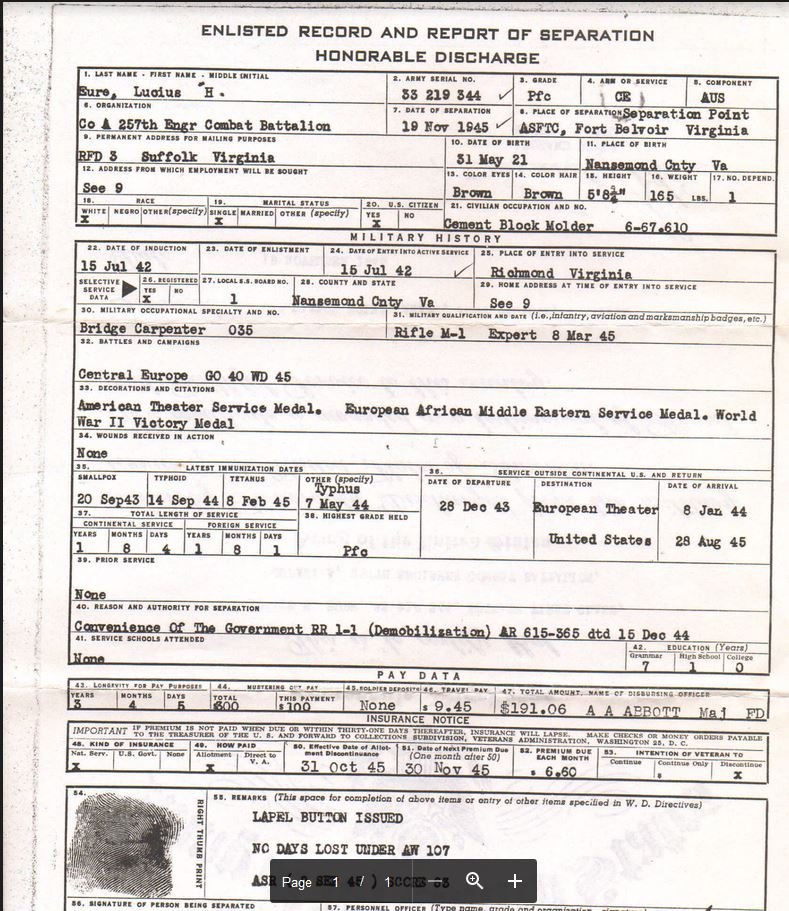 ENLISTED RECORD AND REPORT OF SEPARATION
HONORABLE DISCHARGE
1. LAST NAME - FIRST NAME - MIDDLE INITIAL
Eure, Lucius H.
2. ARMY SERIAL NO.
33 219 344
3. GRADE
Pfc
4. ARM OR SERVICE
CE
5. COMPONENT
AUS
6. ORGANIZATION
Co A 257th Engr Combat Battalion
7. DATE OF SEPARATION
19 Nov 1945
8. PLACE OF SEPARATION Separation Point
ASFTC, Fort Belvoir Virginia
9. PERMANENT ADDRESS FOR MAILING PURPOSES
RFD 3 Suffolk Virginia
10. DATE OF BIRTH
31 May 21
11. PLACE OF BIRTH
Nansemond Cnty Va
12. ADDRESS FROM WHICH EMPLOYMENT WILL BE SOUGHT
See 9
13. COLOR EYES
Brown
14. COLOR HAIR
Brown
15. HEIGHT
16. WEIGHT
165 LBS.
17. NO. DEPEND.
1
18. RACE
WHITE NEGRO OTHER (specify)
X
19. MARITAL STATUS
SINGLE MARRIED OTHER (specify)
X
20. U.S. CITIZEN
YES NO
X
21. CIVILIAN OCCUPATION AND NO.
Cement Block Molder 6-67.610
MILITARY HISTORY
22. DATE OF INDUCTION
15 Jul 42
23. DATE OF ENLISTMENT
24. DATE OF ENTRY INTO ACTIVE SERVICE
15 Jul 42
25. PLACE OF ENTRY INTO SERVICE
Richmond Virginia
SELECTIVE SERVICE DATA
26. REGISTERED
YES NO
X
27. LOCAL S.S. BOARD NO.
1
28. COUNTY AND STATE
Nansemond Cnty Va
29. HOME ADDRESS AT TIME OF ENTRY INTO SERVICE
See 9
30. MILITARY OCCUPATIONAL SPECIALTY AND NO.
Bridge Carpenter 035
31. MILITARY QUALIFICATION AND DATE (i.e., infantry, aviation and marksmanship badges, etc.)
Rifle M-1 Expert 8 Mar 45
32. BATTLES AND CAMPAIGNS
Central Europe GO 40 WD 45
33. DECORATIONS AND CITATIONS
American Theater Service Medal. European African Middle Eastern Service Medal. World
War II Victory Medal
34. WOUNDS RECEIVED IN ACTION
None
35. LATEST IMMUNIZATION DATES
SMALLPOX
20 Sep43
TYPHOID
14 Sep 44
TETANUS
8 Feb 45
OTHER (specify)
Typhus
7 May 44
36. SERVICE OUTSIDE CONTINENTAL U.S. AND RETURN
DATE OF DEPARTURE DESTINATION DATE OF ARRIVAL
28 Dec 43 European Theater 8 Jan 44
United States 28 Aug 45
37. TOTAL LENGTH OF SERVICE
CONTINENTAL SERVICE FOREIGN SERVICE
YEARS MONTHS DAYS YEARS MONTHS DAYS
1 8 4 1 8 1
38. HIGHEST GRADE HELD
Pfc
39. PRIOR SERVICE
None
40. REASON AND AUTHORITY FOR SEPARATION
Convenience Of The Government RR 1-1 (Demobilization) AR 615-365 dtd 15 Dec 44
41. SERVICE SCHOOLS ATTENDED
None
42. EDUCATION (Years)
Grammar High School College
7 1 0
PAY DATA
43. LONGEVITY FOR PAY PURPOSES
YEARS MONTHS DAYS
3 4 5
44. MUSTERING OUT PAY
TOTAL THIS PAYMENT
$300 $100
45. SOLDIER DEPOSITS
None
46. TRAVEL PAY
$ 9.45
47. TOTAL AMOUNT, NAME OF DISBURSING OFFICER
$191.06 A A ABBOTT Maj FD
INSURANCE NOTICE
IMPORTANT IF PREMIUM IS NOT PAID WHEN DUE OR WITHIN THIRTY-ONE DAYS THEREAFTER, INSURANCE WILL LAPSE. MAKE CHECKS OR MONEY ORDERS PAYABLE
TO THE TREASURER OF THE U. S. AND FORWARD TO COLLECTIONS SUBDIVISION, VETERANS ADMINISTRATION, WASHINGTON 25, D. C.
48. KIND OF INSURANCE
Nat. Serv. U.S. Govt. None
X
49. HOW PAID
Allotment Direct to V. A.
X
50. Effective Date of Allotment Discontinuance
31 Oct 45
51. Date of Next Premium Due (One month after 50)
30 Nov 45
52. PREMIUM DUE EACH MONTH
$ 6.60
53. INTENTION OF VETERAN TO
Continue Continue Only Discontinue
X
54.
RIGHT THUMB PRINT
55. REMARKS (This space for completion of above items or entry of other items specified in W. D. Directives)
LAPEL BUTTON ISSUED
NO DAYS LOST UNDER AW 107
ASR
Page 1 / 1
56. SIGNATURE OF PERSON BEING SEPARATED
57. PERSONNEL OFFICER (Type name, grade and organization